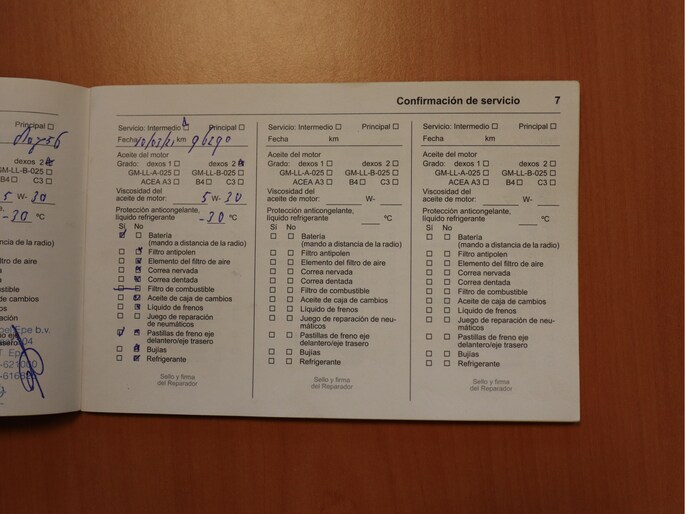 Confirmación de servicio 7
Principal
dexos 2
GM-LL-B-025
C3
5 W- 30
-30 °C
Servicio: Intermedio Principal
Fecha km 96290
Aceite del motor
Grado: dexos 1 dexos 2
GM-LL-A-025 GM-LL-B-025
ACEA A3 B4 C3
Viscosidad del
aceite de motor: 5 W- 30
Protección anticongelante,
líquido refrigerante -30 °C
Sí No
Batería
(mando a distancia de la radio)
Filtro antipolen
Elemento del filtro de aire
Correa nervada
Correa dentada
Filtro de combustible
Aceite de caja de cambios
Líquido de frenos
Juego de reparación
de neumáticos
Pastillas de freno eje
delantero/eje trasero
Bujías
Refrigerante
Sello y firma
del Reparador
Servicio: Intermedio Principal
Fecha km
Aceite del motor
Grado: dexos 1 dexos 2
GM-LL-A-025 GM-LL-B-025
ACEA A3 B4 C3
Viscosidad del
aceite de motor: W-
Protección anticongelante,
líquido refrigerante °C
Sí No
Batería
(mando a distancia de la radio)
Filtro antipolen
Elemento del filtro de aire
Correa nervada
Correa dentada
Filtro de combustible
Aceite de caja de cambios
Líquido de frenos
Juego de reparación de neu-
máticos
Pastillas de freno eje
delantero/eje trasero
Bujías
Refrigerante
Sello y firma
del Reparador
Servicio: Intermedio Principal
Fecha km
Aceite del motor
Grado: dexos 1 dexos 2
GM-LL-A-025 GM-LL-B-025
ACEA A3 B4 C3
Viscosidad del
aceite de motor: W-
Protección anticongelante,
líquido refrigerante °C
Sí No
Batería
(mando a distancia de la radio)
Filtro antipolen
Elemento del filtro de aire
Correa nervada
Correa dentada
Filtro de combustible
Aceite de caja de cambios
Líquido de frenos
Juego de reparación de neu-
máticos
Pastillas de freno eje
delantero/eje trasero
Bujías
Refrigerante
Sello y firma
del Reparador